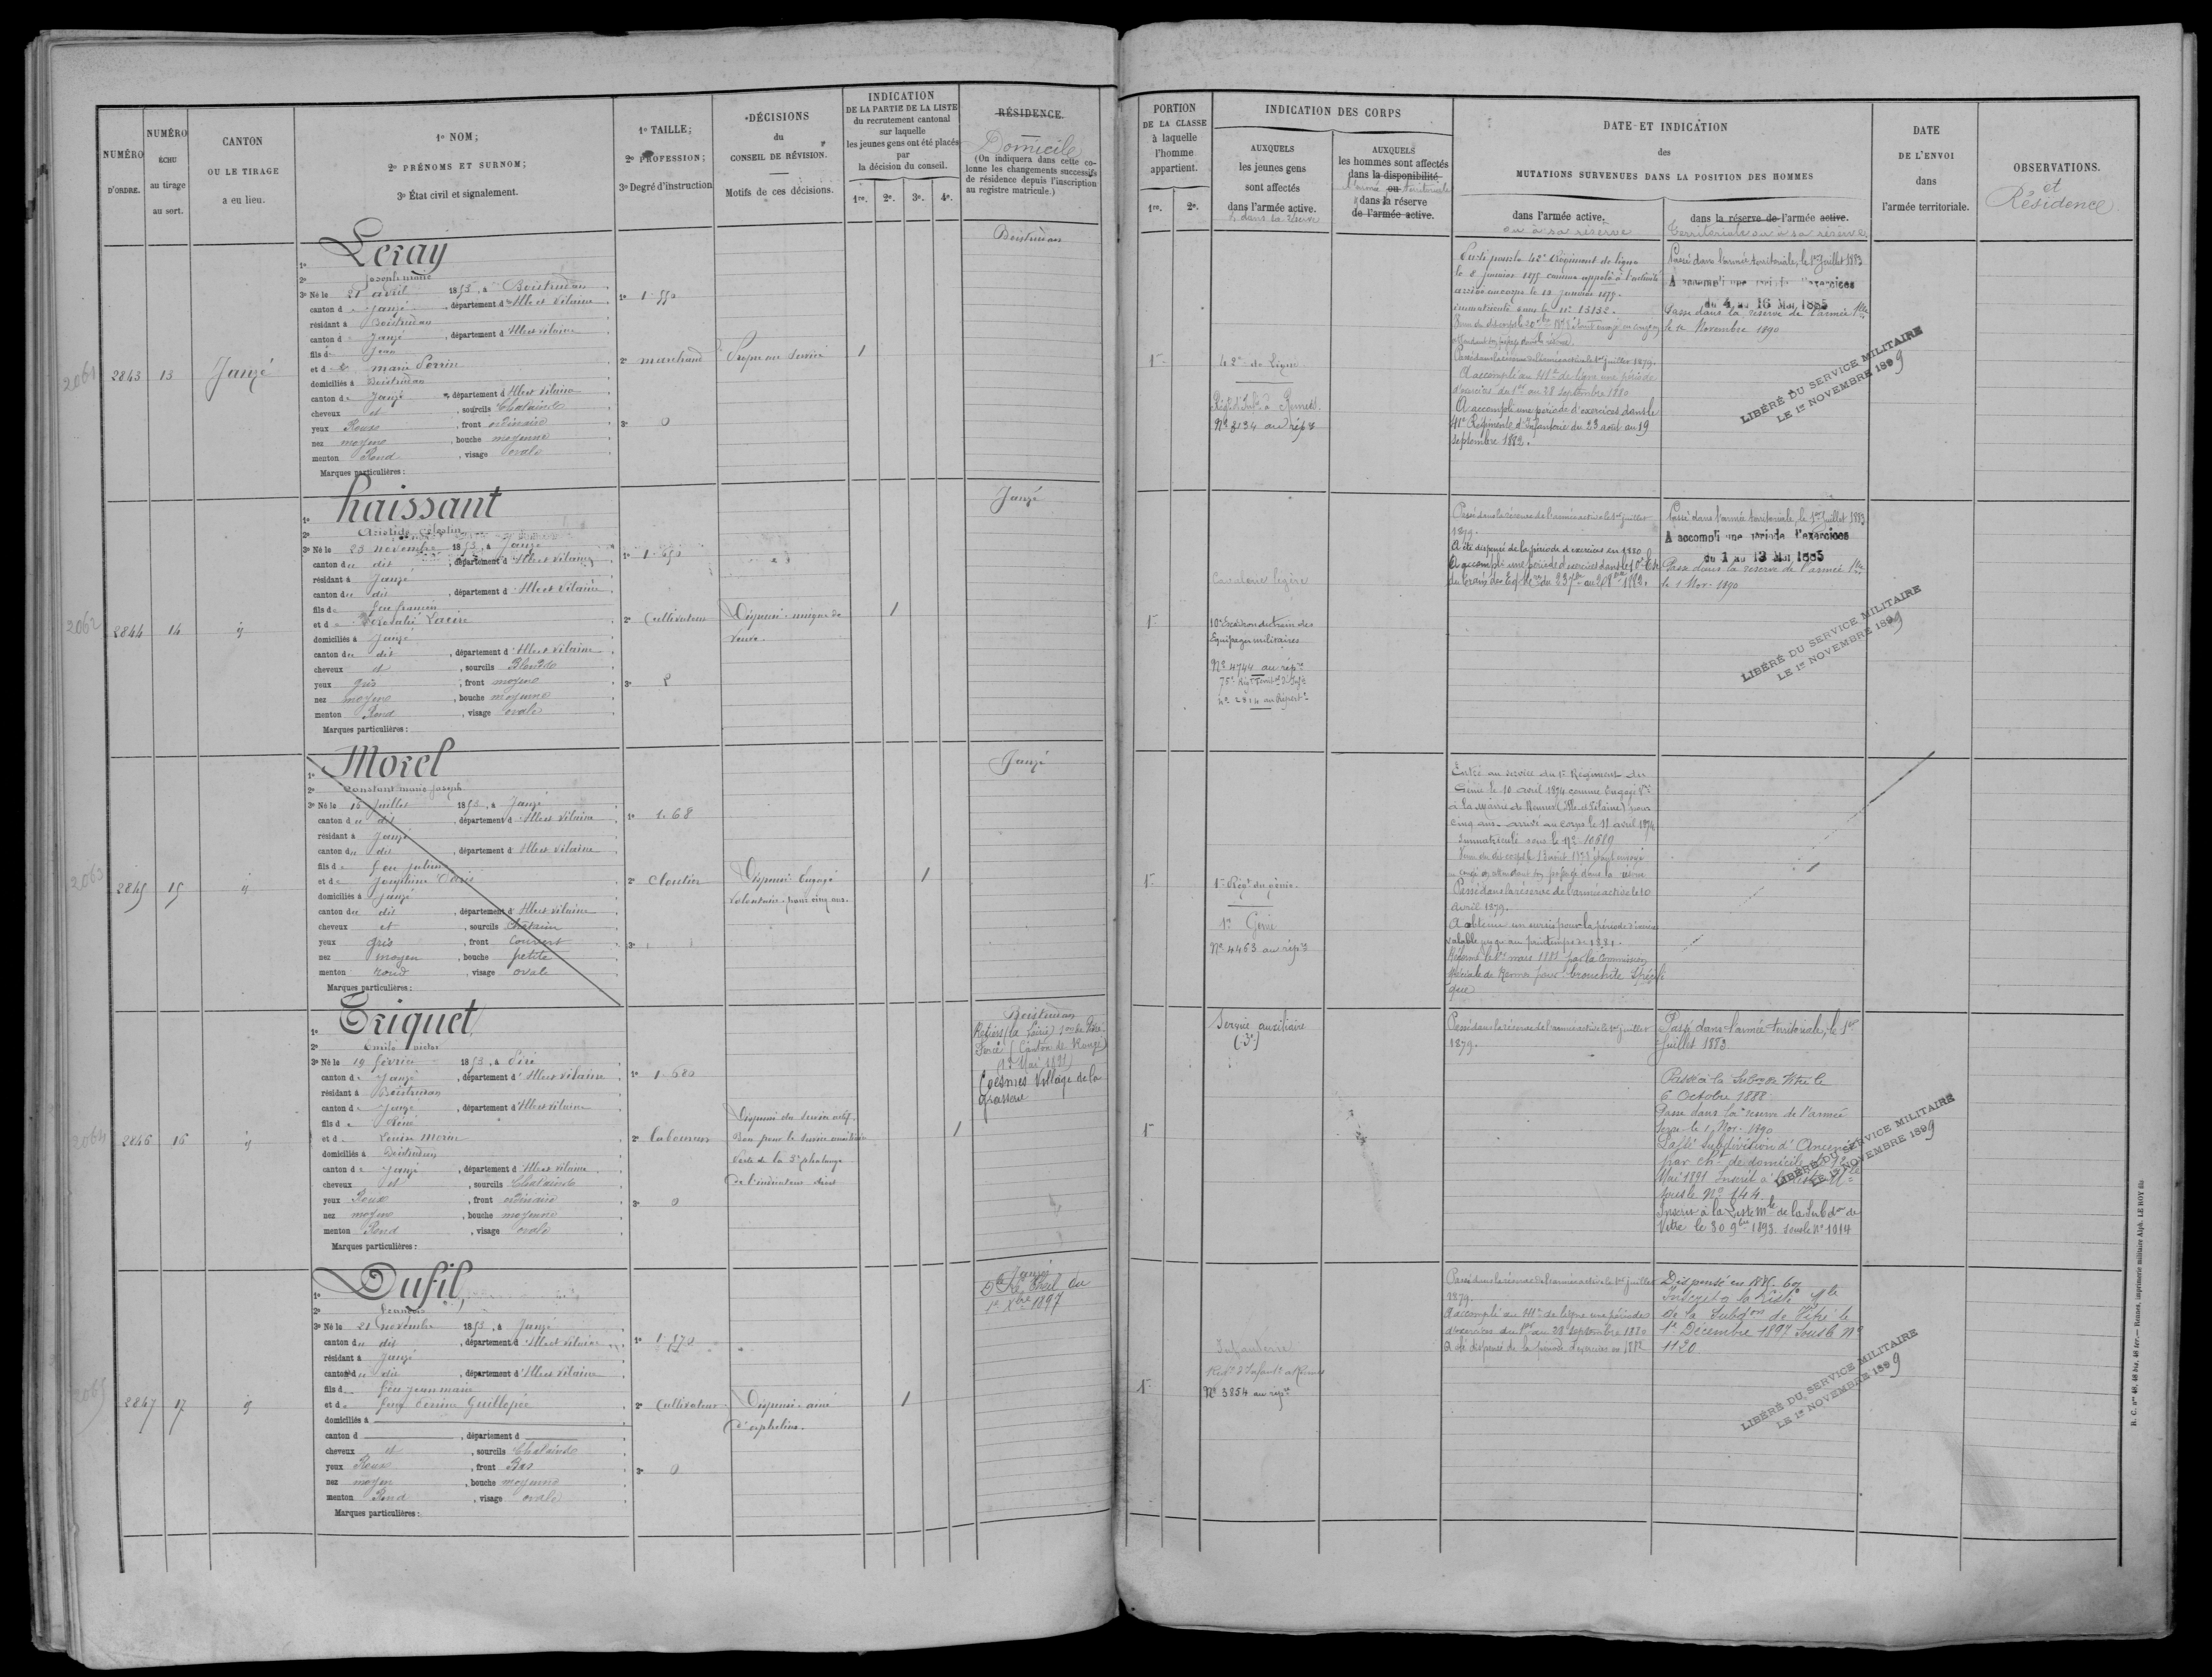 NUMÉRO
D'ORDRE.
NUMÉRO
ÉCHU
au tirage
au sort.
CANTON
OU LE TIRAGE
a eu lieu.
1º NOM;
2º PRÉNOMS ET SURNOM;
3º État civil et signalement.
1º TAILLE;
2º PROFESSION;
3º Degré d'instruction
DÉCISIONS
du
CONSEIL DE RÉVISION.
Motifs de ces décisions.
INDICATION
DE LA PARTIE DE LA LISTE
du recrutement cantonal
sur laquelle
les jeunes gens ont été placés
par
la décision du conseil.
1re. 2e. 3e. 4e.
RÉSIDENCE.
Domicile
(On indiquera dans cette co-
lonne les changements successifs
de résidence depuis l'inscription
au registre matricule.)
2061
2843 13 Janzé
Leray
1º
2º Joseph marie
3º Né le 21 avril 1853, à Boistrudan
canton de Janzé, département d'Ille et Vilaine
résidant à Boistrudan
canton de Janzé, département d'Ille et Vilaine
fils de Jean
et de marie Perrin
domiciliés à Boistrudan
canton de Janzé, département d'Ille et Vilaine
cheveux et, sourcils Chatains
yeux Roux, front ordinaire
nez moyen, bouche moyenne
menton Rond, visage ovale
Marques particulières :
1º 1.550
2º marchand
3º 0
Propre au service
1
Boistrudan
2062
2844 14
haissant
1º
2º Aristide Célestin
3º Né le 23 novembre 1853, à Janzé
canton du dit, département d'Ille et Vilaine
résidant à Janzé
canton du dit, département d'Ille et Vilaine
fils de feu francis
et de
domiciliés à Janzé
canton du dit, département d'Ille et Vilaine
cheveux et, sourcils Blonds
yeux gris, front moyen
nez moyen, bouche moyenne
menton Rond, visage ovale
Marques particulières :
1º 1.650
2º Cultivateur
3º 2
Dispensé unique de
veuve
1
Janzé
2063
2845 15
Morel
1º
2º Constant marie joseph
3º Né le 15 juillet 1853, à Janzé
canton du dit, département d'Ille et Vilaine
résidant à Janzé
canton du dit, département d'Ille et Vilaine
fils de feu julien
et de Joséphine
domiciliés à Janzé
canton du dit, département d'Ille et Vilaine
cheveux et, sourcils Chatain
yeux gris, front couvert
nez moyen, bouche petite
menton rond, visage ovale
Marques particulières :
1º 1.68
2º Cloutier
3º
Dispensé Engagé
volontaire pour cinq ans.
1
Janzé
2064
2846 16
Triquet
1º
2º Emile victor
3º Né le 19 février 1853, à Piré
canton de Janzé, département d'Ille et Vilaine
résidant à Boistrudan
canton de Janzé, département d'Ille et Vilaine
fils de René
et de Louise Morin
domiciliés à Boistrudan
canton de Janzé, département d'Ille et Vilaine
cheveux et, sourcils Chatains
yeux Roux, front ordinaire
nez moyen, bouche moyenne
menton Rond, visage ovale
Marques particulières :
1º 1.680
2º laboureur
3º 0
Dispensé du service actif
Bon pour le service auxiliaire
Perte de la 3e phalange
de l'indicateur droit
1
Boistrudan
Coësmes Village de la
2065
2847 17
Dufil
1º
2º François
3º Né le 21 novembre 1853, à Janzé
canton du dit, département d'Ille et Vilaine
résidant à Janzé
canton du dit, département d'Ille et Vilaine
fils de feu jean marie
et de feue
domiciliés à
canton d , département d
cheveux et, sourcils Chatains
yeux Roux, front Bas
nez moyen, bouche moyenne
menton Rond, visage ovale
Marques particulières :
1º 1.570
2º Cultivateur
3º 0
Dispensé ainé
d'orphelins.
1
Janzé
1er Xbre 1897
PORTION
DE LA CLASSE
à laquelle
l'homme
appartient.
1re. 2e.
INDICATION DES CORPS
AUXQUELS
les jeunes gens
sont affectés
dans l'armée active.
& dans la réserve
AUXQUELS
les hommes sont affectés
dans la disponibilité
l'armée ou territoriale
dans la réserve
de l'armée active.
DATE ET INDICATION
des
MUTATIONS SURVENUES DANS LA POSITION DES HOMMES
dans l'armée active.
ou à sa réserve
dans la réserve de l'armée active.
territoriale ou à sa réserve
DATE
DE L'ENVOI
dans
l'armée territoriale.
OBSERVATIONS.
et
Résidence
1re
42e de ligne
Régt d'Infie à Rennes
Nº 3134 au répre
arrivé au corps le 13 janvier 1875.
immatriculé sous le nº 13132.
Passé dans la réserve de l'armée active le 1er juillet 1879.
A accompli au 41e de ligne une période
d'exercices du 1er au 28 septembre 1880
A accompli une période d'exercices dans le
41e Régiment d'Infanterie du 23 août au 19
septembre 1882.
Passé dans l'armée territoriale, le 1er Juillet 1883
A accompli une période d'exercices
du 4 au 16 Mai 1885
Passé dans la réserve de l'armée tlle
le 1er Novembre 1890
LIBÉRÉ DU SERVICE MILITAIRE
LE 1er NOVEMBRE 1899
1re
Cavalerie légère
10e Escadron du train des
Equipages militaires
Nº 4744 au répre
Passé dans la réserve de l'armée active le 1er juillet
1879.
A été dispensé de la période d'exercices en 1880
Passé dans l'armée territoriale, le 1er Juillet 1883
A accompli une période d'exercices
du 1 au 13 Mai 1885
Passé dans la réserve de l'armée tlle
le 1 Nov. 1890
LIBÉRÉ DU SERVICE MILITAIRE
LE 1er NOVEMBRE 1899
1re
1er Régt du génie
1er Génie
Nº 4463 au répre
Entré au service du 1er Régiment du
Génie le 10 avril 1874 comme Engagé Vre
à la Mairie de Rennes (Ille et Vilaine) pour
cinq ans. arrivé au corps le 11 avril 1874
Immatriculé sous le Nº 10689
Passé dans la réserve de l'armée active le 10
avril 1879.
A obtenu un sursis pour la période d'exercices
valable jusqu'au printemps de 1881.
Réformé le mars 1881 par la Commission
Spéciale de Rennes pour bronchite Spécifi
que
1re
Service auxiliaire
(3e)
Passé dans la réserve de l'armée active le 1er juillet
1879.
Passé dans l'armée territoriale, le 1er
Juillet 1883
Passé à la Subon de Vitré le
6 Octobre 1888
Passé dans la réserve de l'armée
terre le 1 Nov. 1890
Passé Subdivision d'Ancenis
par cht de domicile le 12
Mai 1891 Inscrit à la liste Mle
sous le Nº 144
Inscrit à la Liste Mle de la Subdon de
Vitré le 30 9bre 1893. sous le Nº 1014
LIBÉRÉ DU SERVICE MILITAIRE
LE 1er NOVEMBRE 1899
1re
Infanterie
Nº 3854 au répre
Passé dans la réserve de l'armée active le 1er juillet
1879.
A accompli au 41e de ligne une période
d'exercices du 1er au 28 septembre 1880
A été dispensé de la période d'exercices en 1882
Inscrit à la liste Mle
de la Subdon de Vitré le
1er Décembre 1897 sous le Nº
1120
LIBÉRÉ DU SERVICE MILITAIRE
LE 1er NOVEMBRE 1899